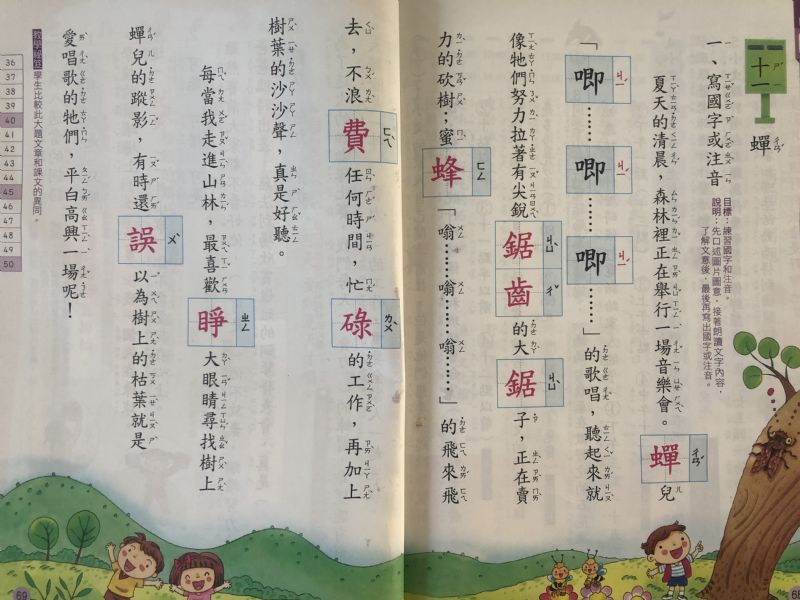 十一 蟬
一、寫國字或注音
目標：練習國字和注音。
說明：先口述圖片圖意，接著朗讀文字內容，
了解文章後，最後再寫出國字或注音。
夏天的清晨，森林裡正在舉行一場音樂會。蟬兒
「唧……唧……唧……」的歌唱，聽起來就
像牠們努力拉著有尖銳鋸齒的大鋸子，正在賣
力的砍樹；蜜蜂「嗡……嗡……嗡……」的飛來飛
去，不浪費任何時間，忙碌的工作，再加上
樹葉的沙沙聲，真是好聽。
每當我走進山林，最喜歡睜大眼睛尋找樹上
蟬兒的蹤影，有時還誤以為樹上的枯葉就是
愛唱歌的牠們，平白高興一場呢！
學生比較此大題文章和課文的異同。
36
37
38
39
40
41
42
43
44
45
46
47
48
49
50
69